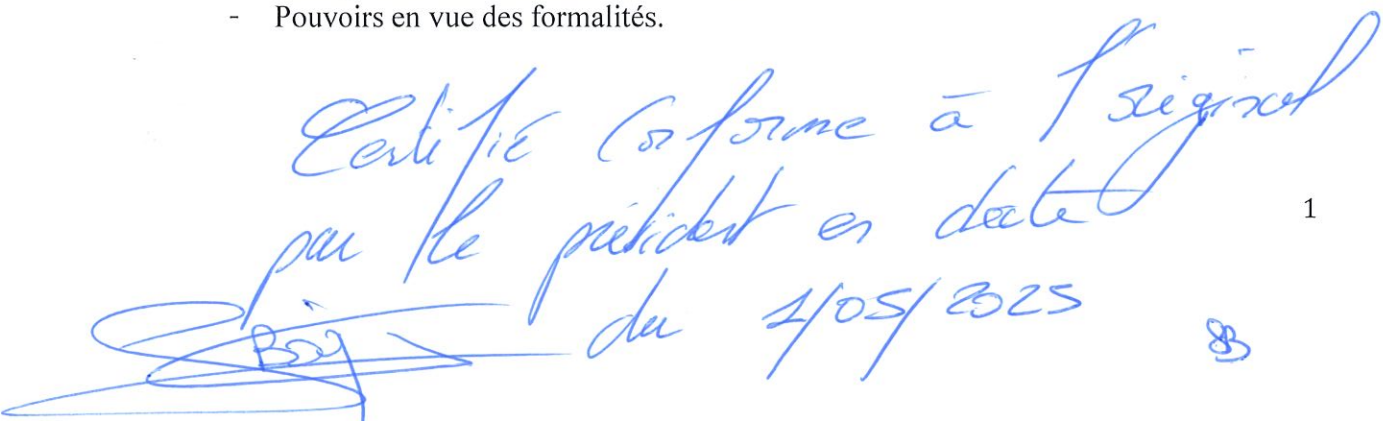 - Pouvoirs en vue des formalités.
Certifié conforme à l'original
par le président en date
1
du 1/05/2025